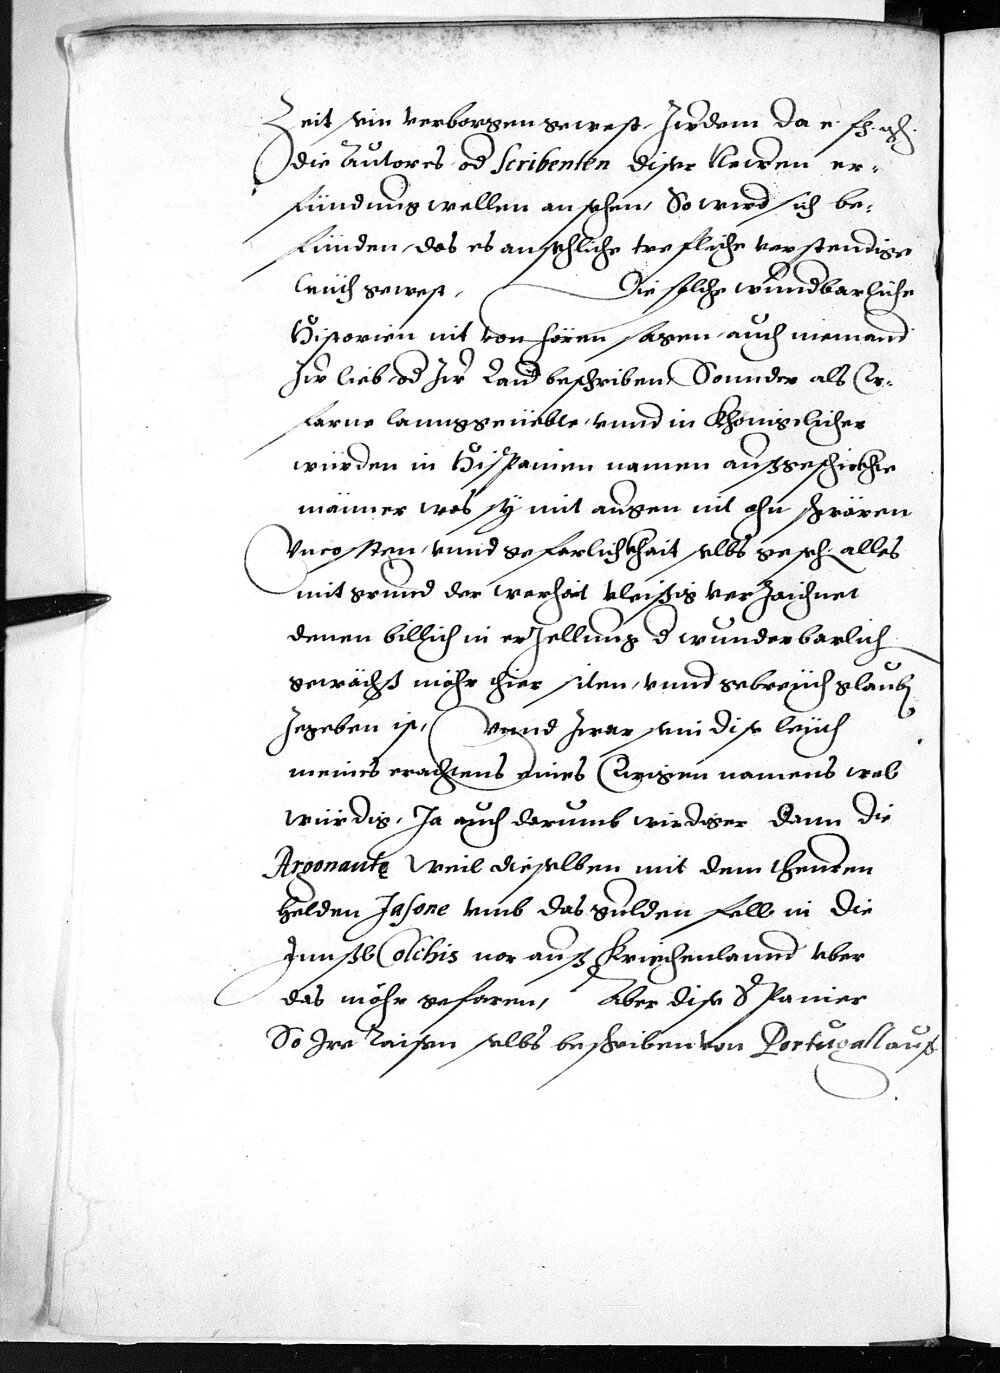 Zeit ein verborgen gewest, Zudem da e. f. g.
die Autores od Scribenten diser Newen er-
findung wellen ansehen, So wird sich be-
finden, das es ansehliche trefliche verstendige
leüth gewest, Die solche wundbarliche
Historien nit von hören sagen, auch niemand
Zu lieb od Zu Laid beschriben Sonnder als Er-
farne lanng geüebte, vnnd in Khönigelicher
würden in Hispanien namen außgeschickhte
männer was sy mit augen nit ohn schwären
Vncosten, vnnd geferlichkhait selbs geseh. alles
mit grund der warheit vleissig verZaichnet
denen billich in erZellung d wunderbarlich
gewächß möhr thier siten, vnnd gebreüch glaub
Zegeben ist, Vnnd Zwar sein dise leüth
meines erachtens eines Ewigen namens wol
würdig, Ja auch darumb wirdiger Dann die
Argonautę weil dieselben mit dem theuren
helden Jasone vmb das gulden fell in die
Innßl Colchis nor auß Kriechenlannd vber
das möhr gefaren, Aber dise Spanier
So Ire Raisen selbs beschriben von Portugall auß